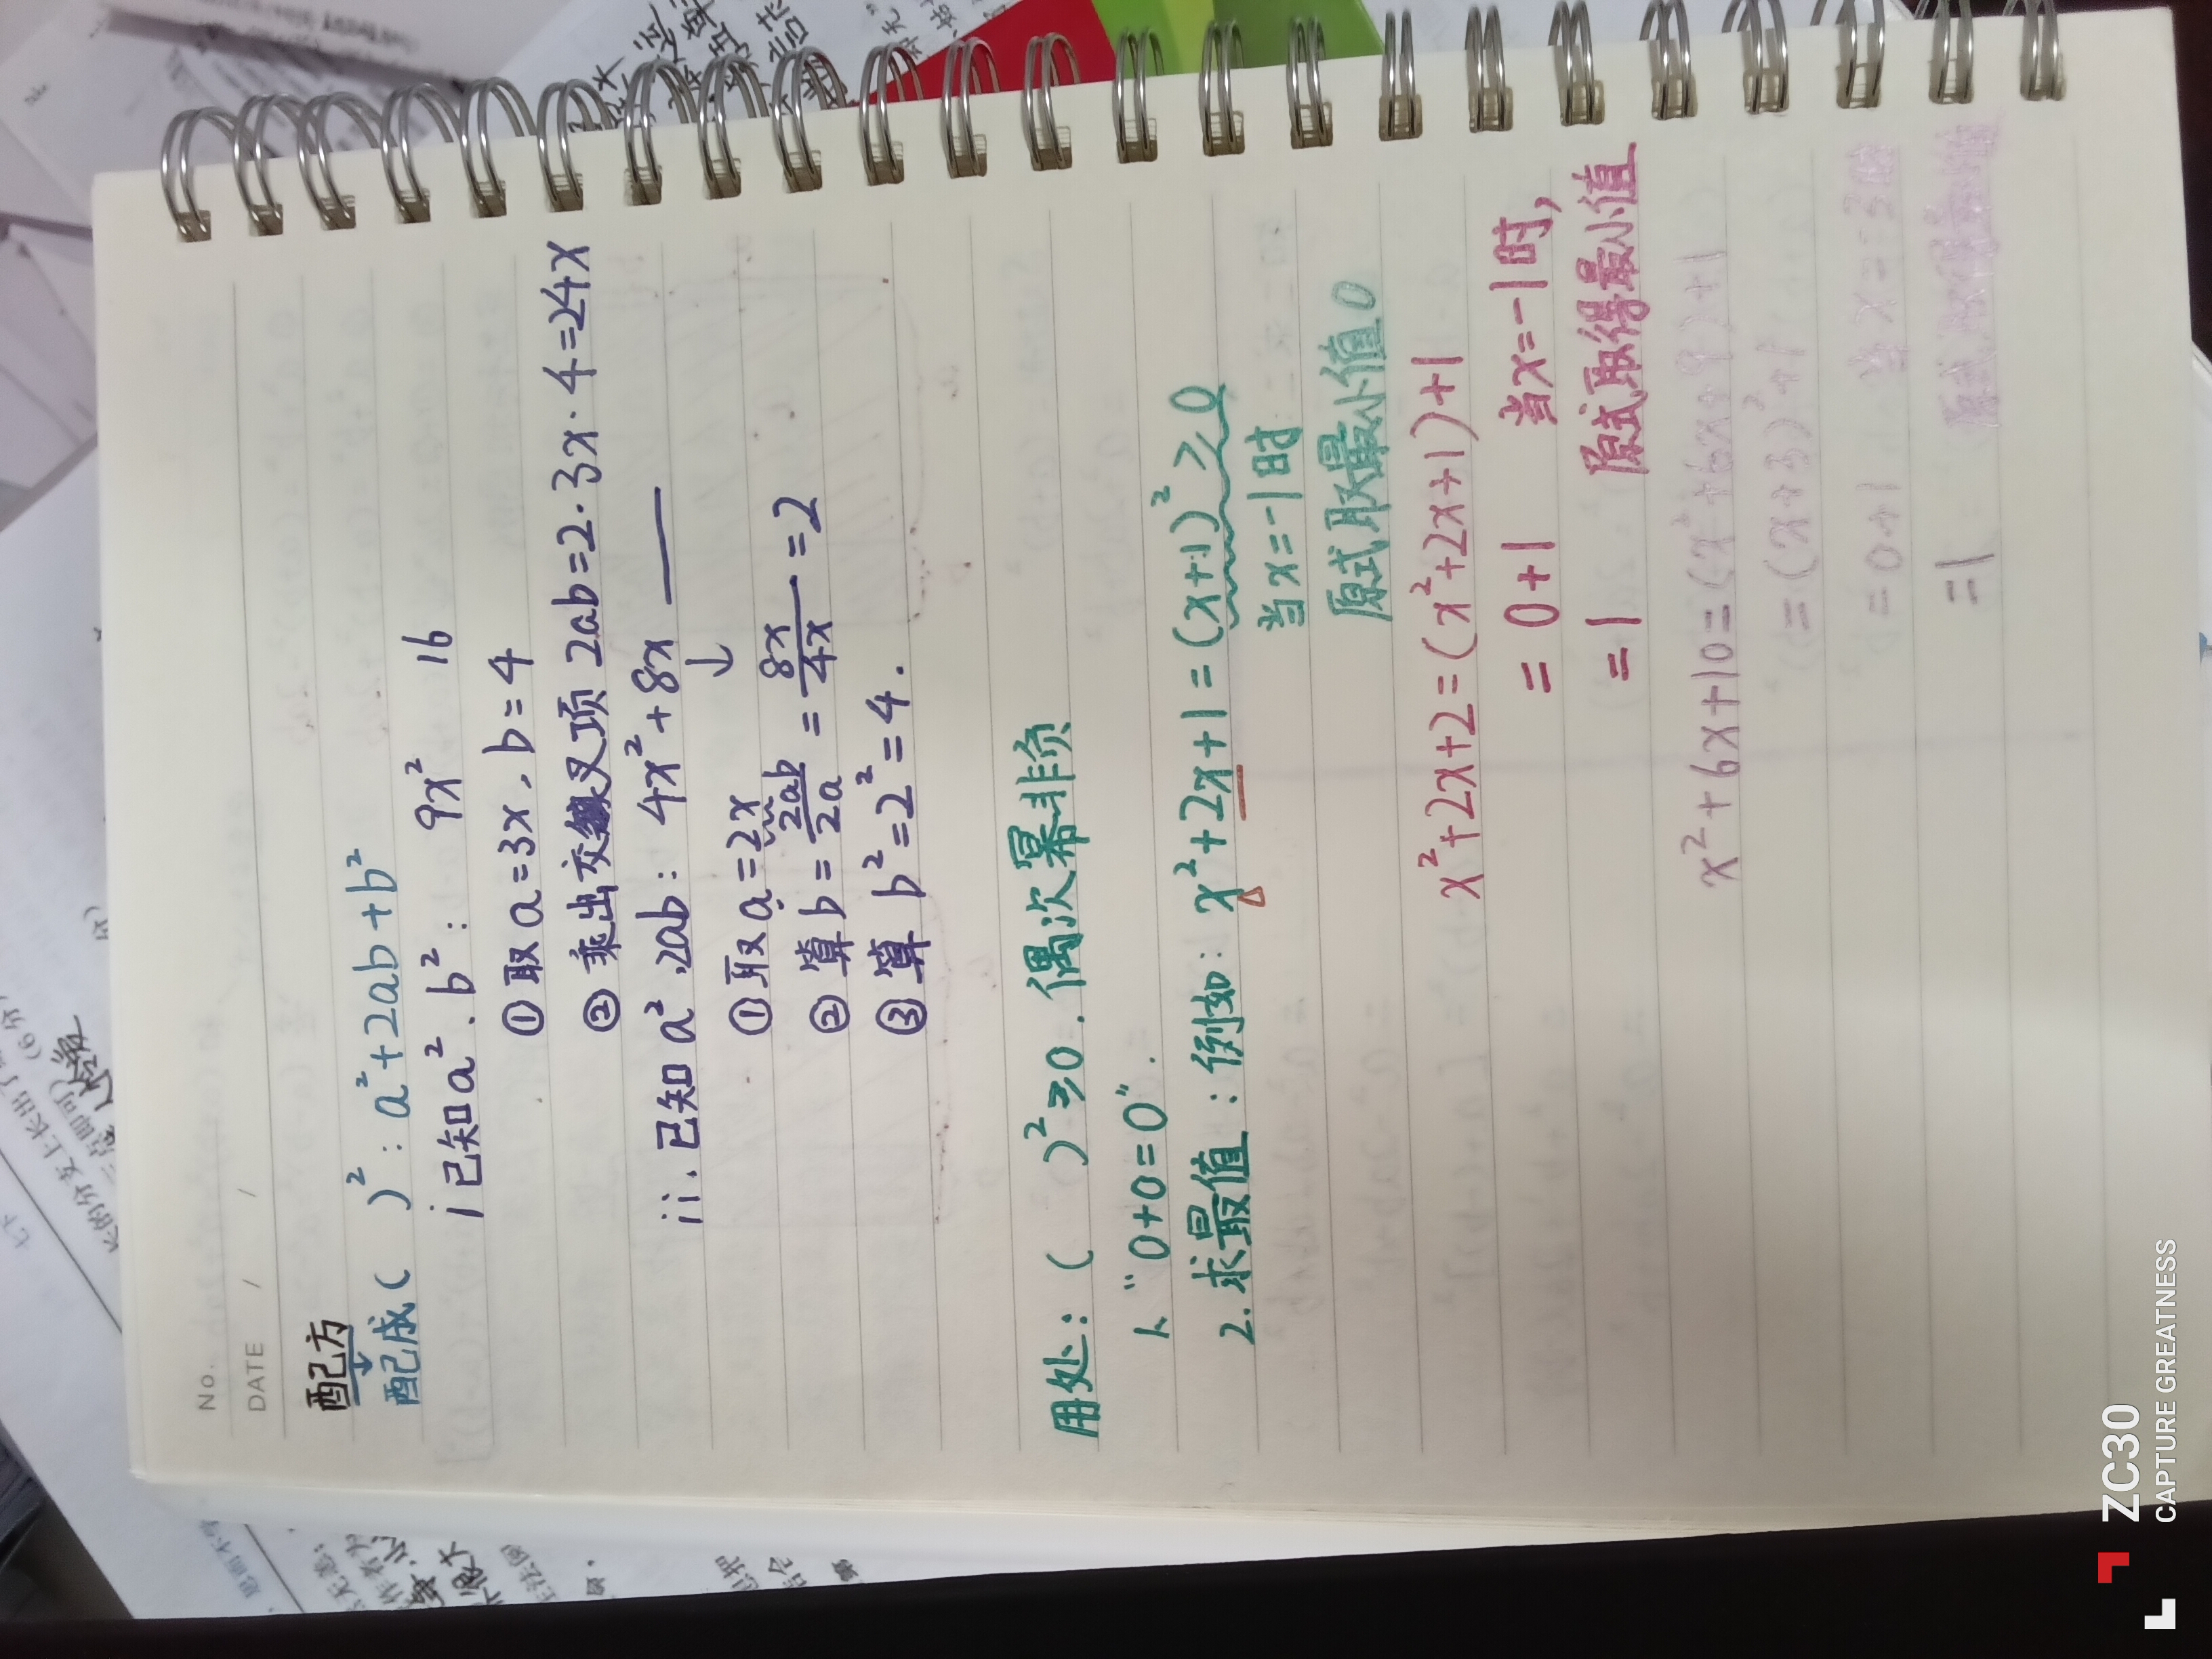 No.
DATE / /
配方
配成( )²: a²+2ab+b²
i 已知a²、b²: 9x² 16
①取a=3x、b=4
②乘出交叉项 2ab=2·3x·4=24x
ii.已知a²、2ab: 4x²+8x ___
↓
①取a=2x
②算b=2ab/2a=8x/4x=2
③算b²=2²=4.
用处:( )²≥0.偶次幂非负
1. "0+0=0".
2.求最值:例如:x²+2x+1=(x+1)²≥0
当x=-1时
原式取最小值0
x²+2x+2=(x²+2x+1)+1
=0+1 当x=-1时,
=1 原式取得最小值
x²+6x+10=(x²+6x+9)+1
=(x+3)²+1
=0+1 当x=-3时
=1 原式取得最小值
ZC30
CAPTURE GREATNESS